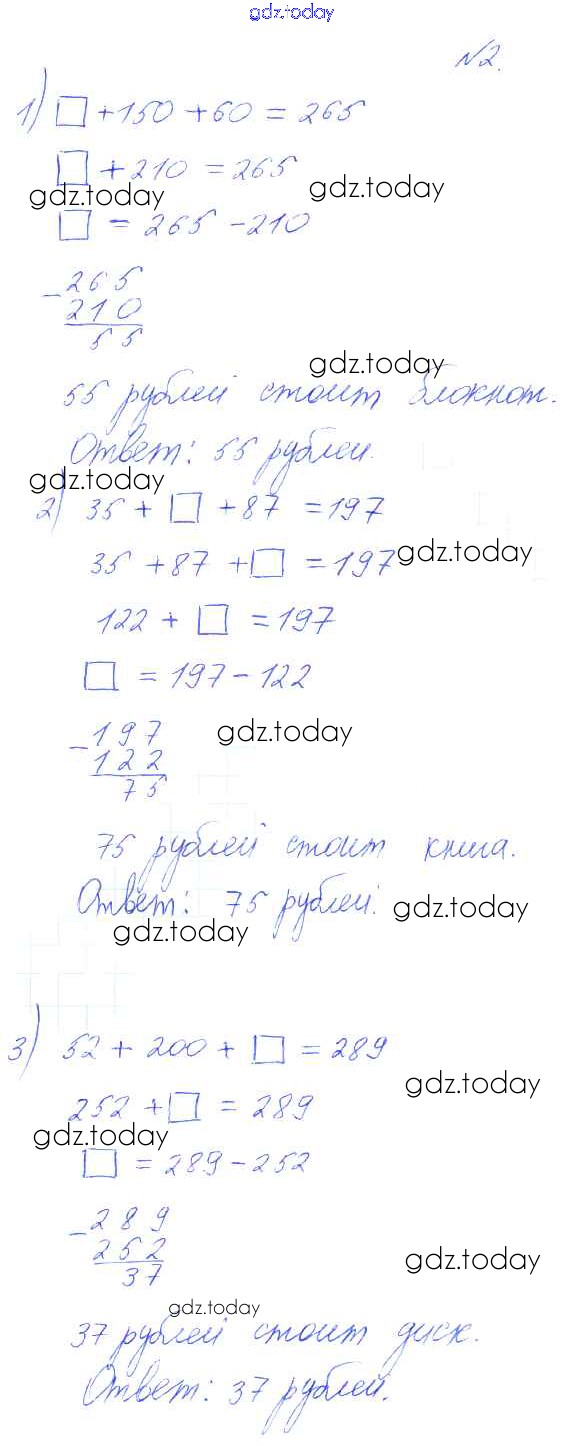 gdz.today
№2.
1) □ + 150 + 60 = 265
□ + 210 = 265
gdz.today gdz.today
□ = 265 - 210
- 265
210
55
gdz.today
55 рублей стоит блокнот.
Ответ: 55 рублей.
gdz.today
2) 35 + □ + 87 = 197
35 + 87 + □ = 197 gdz.today
122 + □ = 197
□ = 197 - 122
- 197 gdz.today
122
75
75 рублей стоит книга.
Ответ: 75 рублей. gdz.today
gdz.today
3) 52 + 200 + □ = 289
gdz.today
252 + □ = 289
gdz.today
□ = 289 - 252
- 289
252 gdz.today
37
gdz.today
37 рублей стоит диск.
Ответ: 37 рублей.